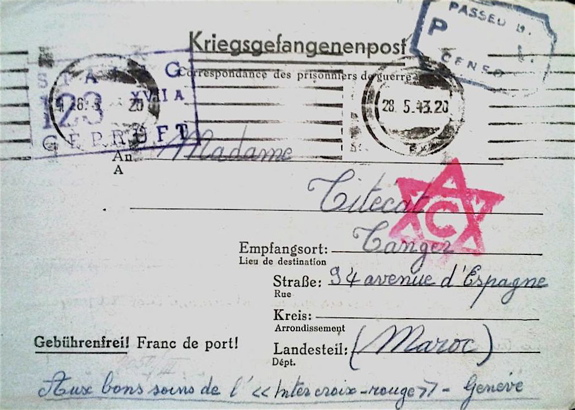 PASSED
P
CENSO
Kriegsgefangenenpost
Correspondance des prisonniers de guerre
STALAG
XVII A
123
GEPRÜFT
28.5.43.20
Madame
An
A
Citécat
C
Empfangsort: Tanger
Lieu de destination
Straße: 94 avenue d'Espagne
Rue
Kreis:
Arrondissement
Gebührenfrei! Franc de port!
Landesteil: (Maroc)
Dépt.
Aux bons soins de l' «Intercroix-rouge» - Genève